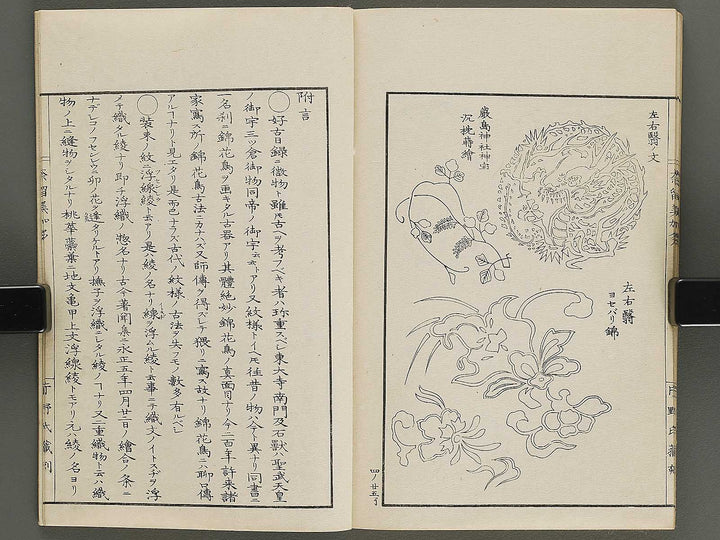 左右翳ノ文
嚴島神社神宝
沉枕蒔繪
左右翳
ヨセバリ錦
四ノ廿五丁
附言
◯好古日録ニ微物ト雖𪜈古ヘヲ考フベキ者ハ珍重スベシ東大寺南門及石獣ハ聖武天皇
ノ御宇三ツ倉御物同帝ノ御宇云々トアリ又紋様トイヘ𪜈往昔ノ物ハ今ト異ナリ同書ニ
一名列錦花鳥ヲ画キタル古器アリ其體絶妙錦花鳥ノ真面目ナリ今二百年許来諸
家寫ス所ノ錦花鳥古法ニカナハズ又師傳ヲ得ズシテ猥リニ寫ス故ナリ錦花鳥ニハ聊口傳
アルヿナリト見エタリ是而已ナラズ古代ノ紋様古法ヲ失フモノ數多有ルベシ
◯装束ノ紋ニ浮線綾ト云アリ是ハ綾ノ名ナリ線ヲ浮ムル綾ト云事ニテ織文ノイトスヂヲ浮
メテ織タル綾ナリ即チ浮織ノ惣名ナリ古今著聞集ニ永正五年四月廿二日ノ繪合ノ条ニ
ナデシコノフセンレウニ卯ノ花ヲ縫タリケルトアリ撫子ヲ浮織ニシタル綾ノヿナリ又二重織物ト云ハ織
物ノ上ニ縫物ヲシタルナリ桃華蘂葉ニ地文亀甲上文浮線綾トモアリ元ハ綾ノ名ヨリ